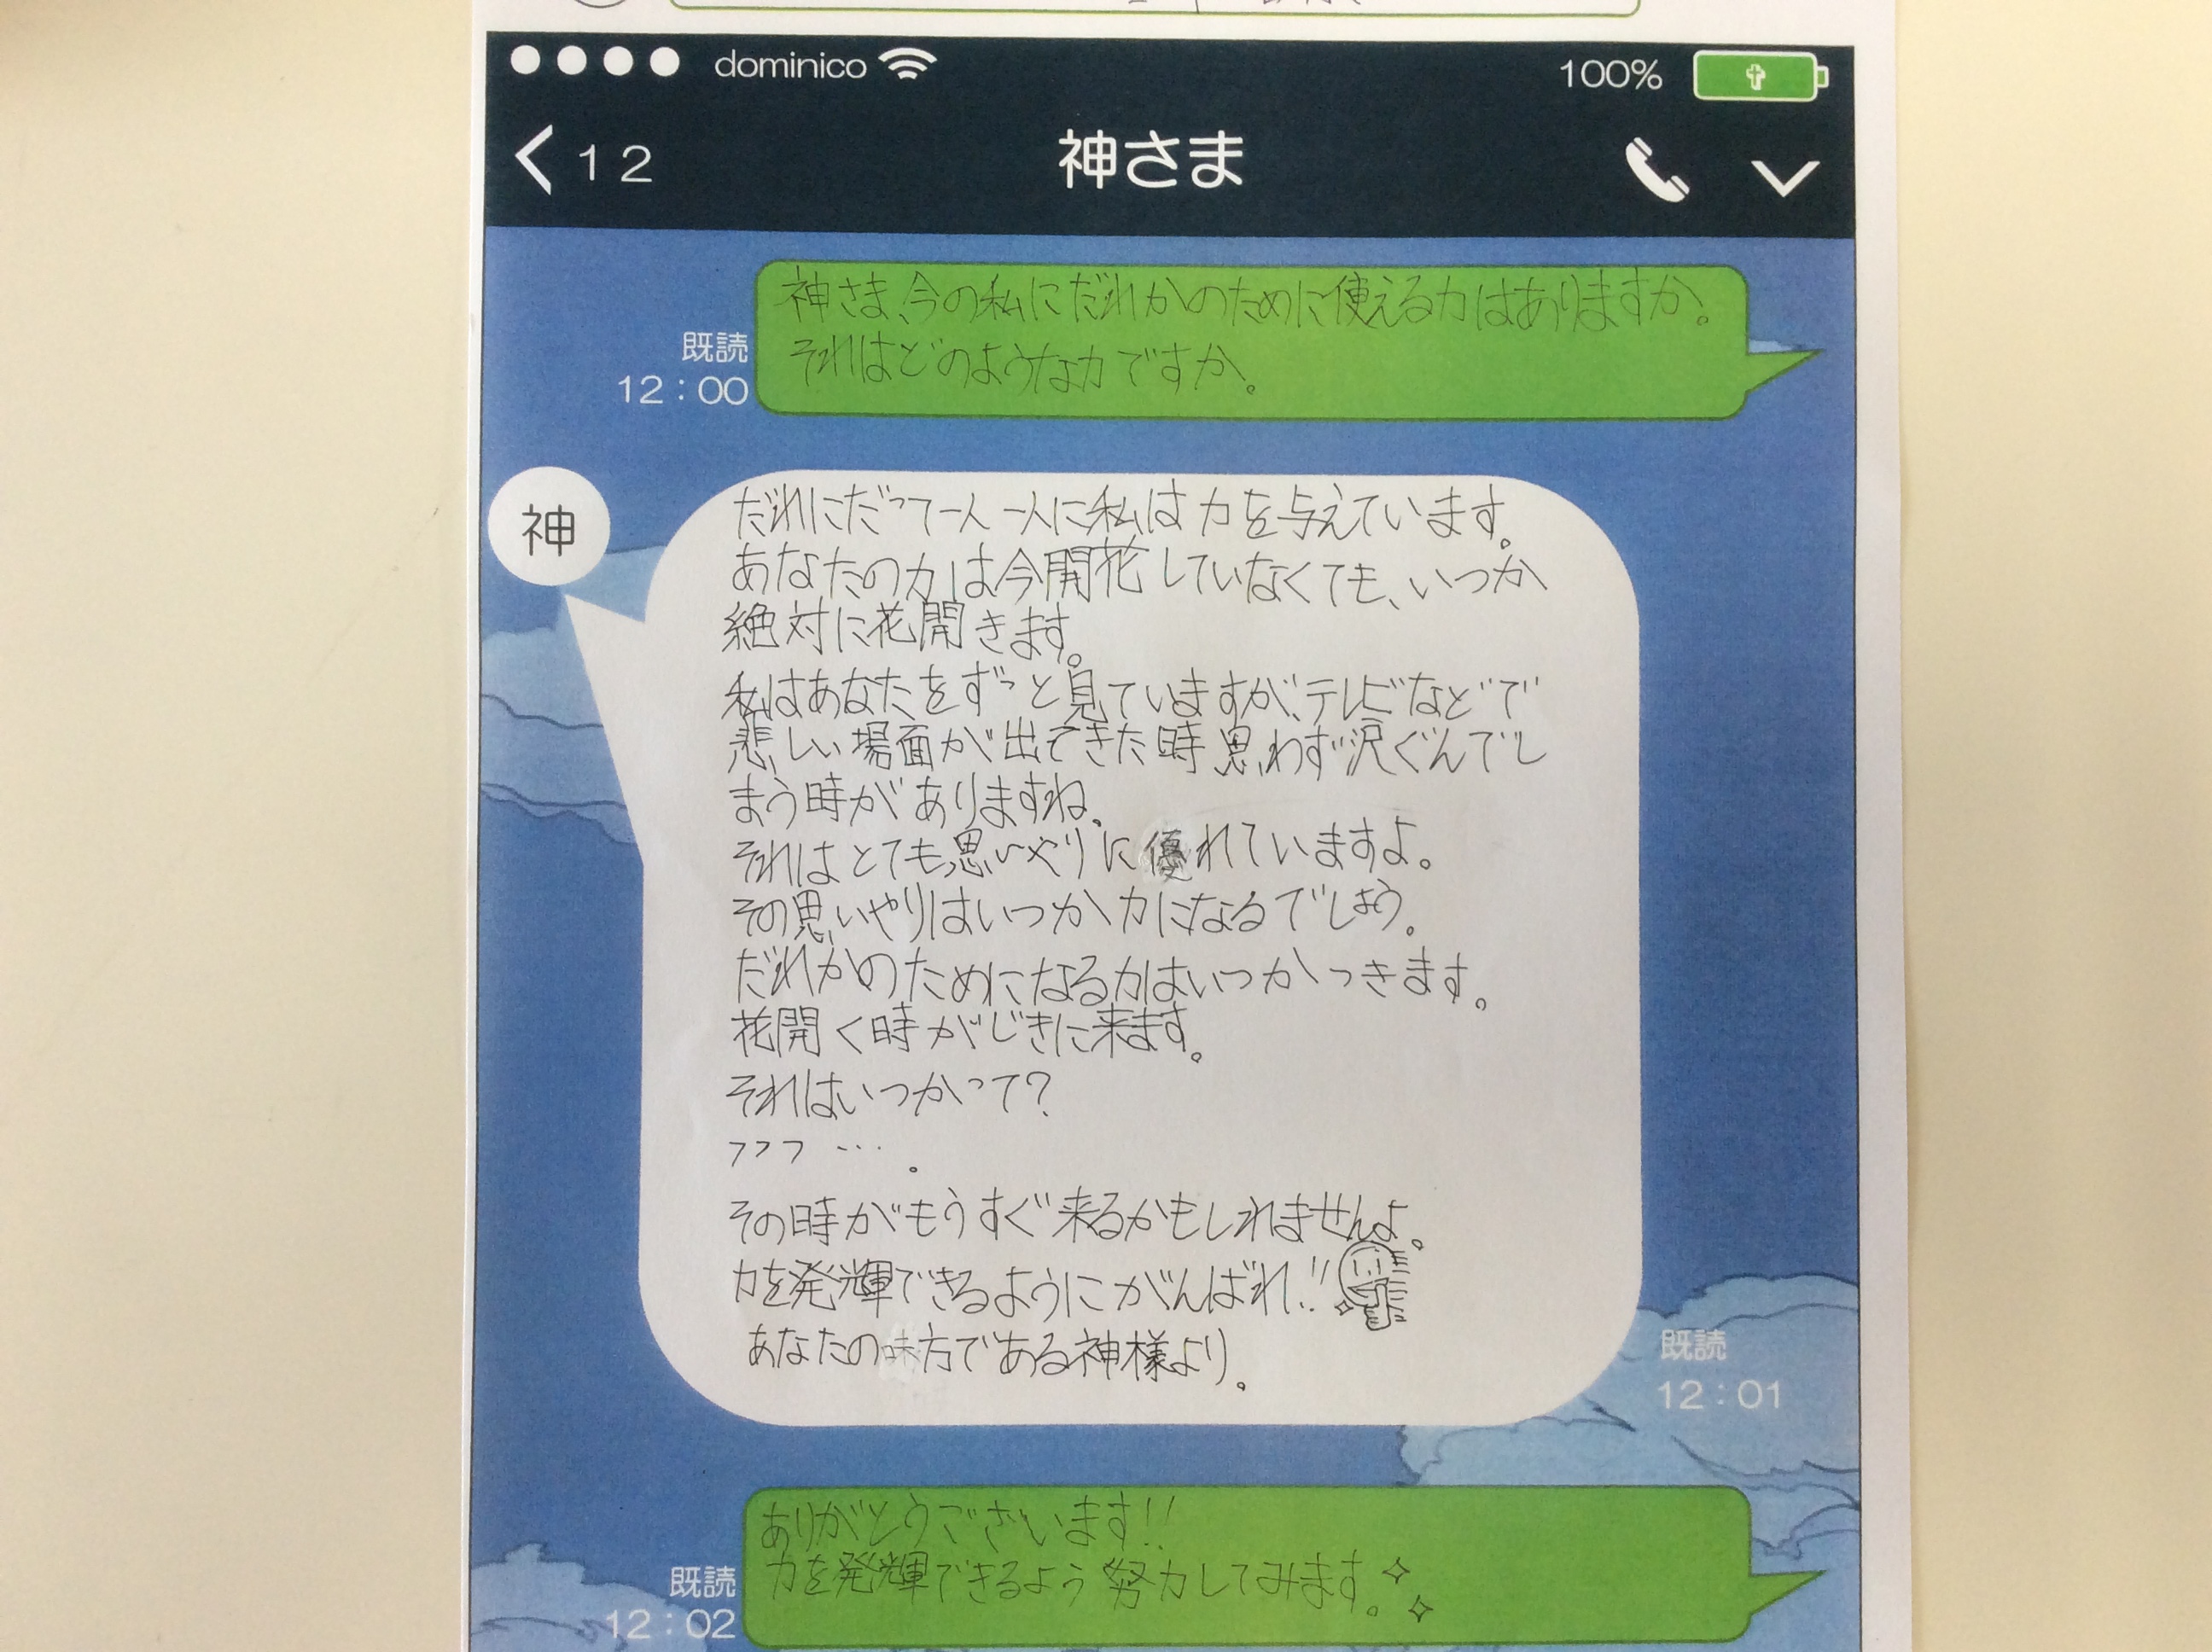 dominico
100%
12
神さま
神さま、今の私にだれかのために使える力はありますか。
それはどのような力ですか。
既読
12:00
神
だれにだって一人一人に私は力を与えています。
あなたの力は今開花していなくても、いつか
絶対に花開きます。
私はあなたをずっと見ていますが、テレビなどで
悲しい場面が出てきた時思わず涙ぐんでし
まう時がありますね。
それはとても思いやりに優れていますよ。
その思いやりはいつか力になるでしょう。
だれかのためになる力はいつかつきます。
花開く時がじきに来ます。
それはいつかって?
フフフ…。
その時がもうすぐ来るかもしれませんよ。
力を発揮できるようにがんばれ!!
あなたの味方である神様より。
既読
12:01
ありがとうございます!!
力を発揮できるよう努力してみます。
既読
12:02